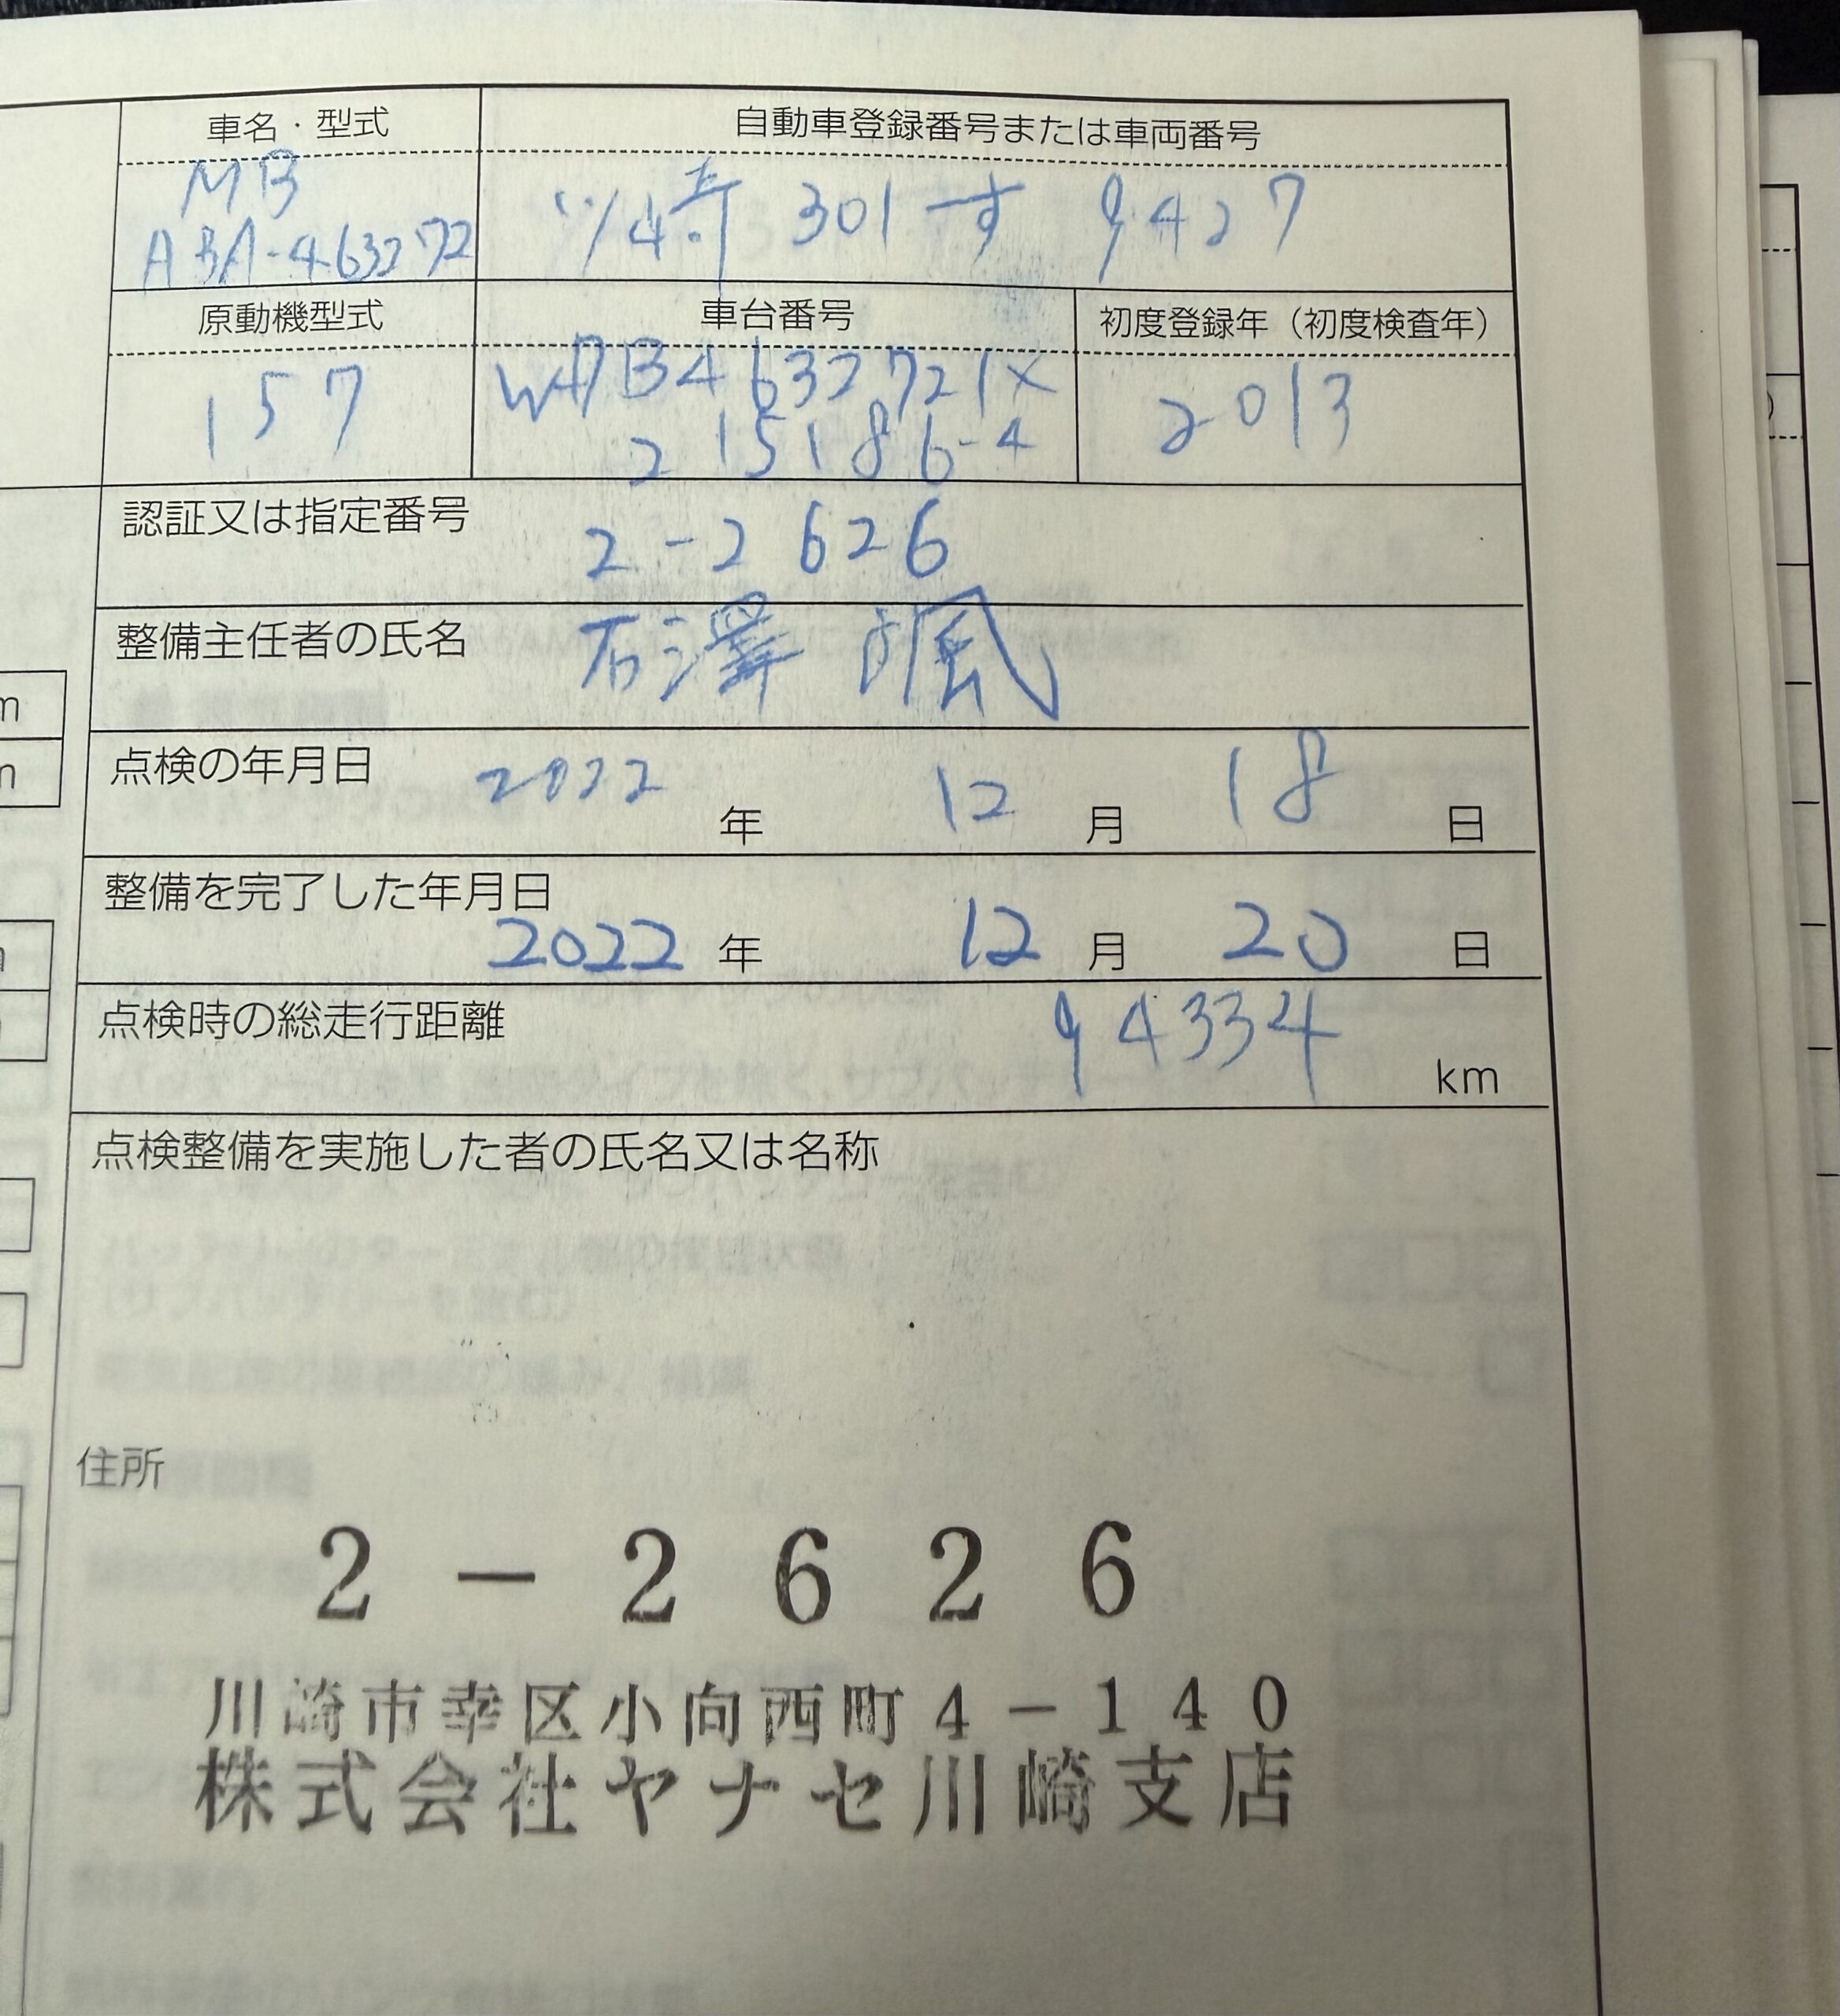 車名・型式
MB
ABA-463272
自動車登録番号または車両番号
川崎 301 す 9427
原動機型式
157
車台番号
WDB4632721X
215186-4
初度登録年（初度検査年）
2013
認証又は指定番号 2-2626
整備主任者の氏名 石澤 颯
点検の年月日 2022 年 12 月 18 日
整備を完了した年月日 2022 年 12 月 20 日
点検時の総走行距離 94334 km
点検整備を実施した者の氏名又は名称
住所
2-2626
川崎市幸区小向西町4-140
株式会社ヤナセ川崎支店